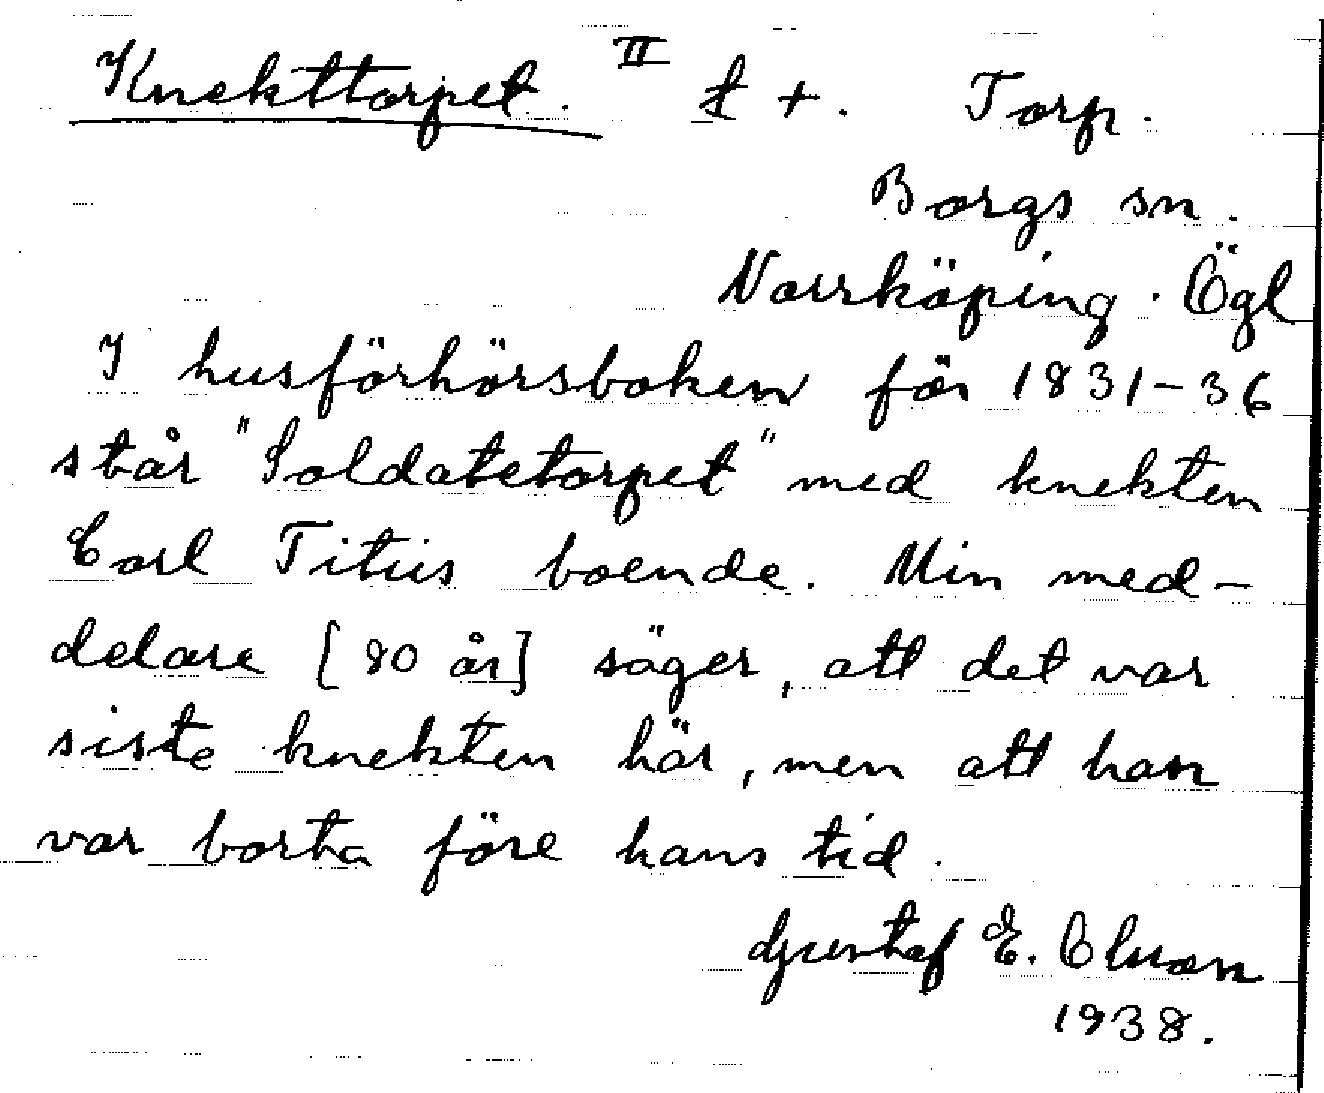 Knekttorpet. II t +. Torp.
Borgs sn.
Norrköping. Ögl
I husförhörsboken för 1831-36
står "Soldatetorpet" med knekten
Carl Titus boende. Min med-
delare [80 år] säger, att det var
siste knekten här, men att han
var borta före hans tid.
Gustaf E.
1938.